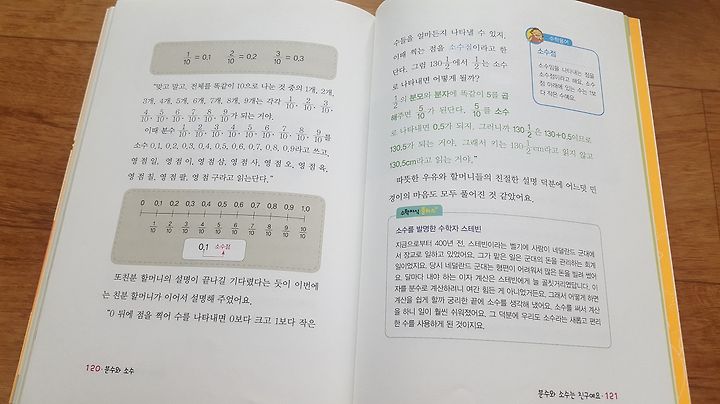 1/10 = 0.1 2/10 = 0.2 3/10 = 0.3
"맞고 말고. 전체를 똑같이 10으로 나눈 것 중의 1개, 2개,
3개, 4개, 5개, 6개, 7개, 8개, 9개는 각각 1/10, 2/10, 3/10,
4/10, 5/10, 6/10, 7/10, 8/10, 9/10가 되는 거야.
이때 분수 1/10, 2/10, 3/10, 4/10, 5/10, 6/10, 7/10, 8/10, 9/10를
소수 0.1, 0.2, 0.3, 0.4, 0.5, 0.6, 0.7, 0.8, 0.9라고 쓰고,
영 점 일, 영 점 이, 영 점 삼, 영 점 사, 영 점 오, 영 점 육,
영 점 칠, 영 점 팔, 영 점 구라고 읽는단다."
0 0.1 0.2 0.3 0.4 0.5 0.6 0.7 0.8 0.9 1.0
1/10 2/10 3/10 4/10 5/10 6/10 7/10 8/10 9/10 10/10
0.1 소수점
또친분 할머니의 설명이 끝나길 기다렸다는 듯이 이번에
는 친분 할머니가 이어서 설명해 주었어요.
"0 뒤에 점을 찍어 수를 나타내면 0보다 크고 1보다 작은
120 · 분수와 소수
수들을 얼마든지 나타낼 수 있지.
이때 찍는 점을 소수점이라고 한
단다. 그럼 130 1/2에서 1/2는 소수
로 나타내면 어떻게 될까?
1/2의 분모와 분자에 똑같이 5를 곱
해주면 5/10가 된단다. 5/10를 소수
로 나타내면 0.5가 되지. 그러니까 130 1/2은 130+0.5이므로
130.5가 되는 거야. 그래서 키는 130 1/2cm라고 읽지 않고
130.5cm라고 읽는 거야."
따뜻한 우유와 할머니들의 친절한 설명 덕분에 어느덧 민
경이의 마음도 모두 풀어진 것 같았어요.
수학용어
소수점
소수임을 나타내는 점을
소수점이라고 해요. 소수점
아래에 있는 수는 1보
다 작은 수예요.
수학지식 플러스
소수를 발명한 수학자 스테빈
지금으로부터 400년 전, 스테빈이라는 벨기에 사람이 네덜란드 군대에
서 장교로 일하고 있었어요. 그가 맡은 일은 군대의 돈을 관리하는 회계
일이었지요. 당시 네덜란드 군대는 형편이 어려워서 많은 돈을 빌려 썼어
요. 달마다 내야 하는 이자 계산은 스테빈에게 늘 골칫거리였답니다. 이
자를 분수로 계산하려니 여간 힘든 게 아니었거든요. 그래서 어떻게 하면
계산을 쉽게 할까 궁리한 끝에 소수를 생각해 냈어요. 소수를 써서 계산
을 하니 일이 훨씬 쉬워졌어요. 그 덕분에 우리도 소수라는 새롭고 편리
한 수를 사용하게 된 것이지요.
분수와 소수는 친구예요 · 121